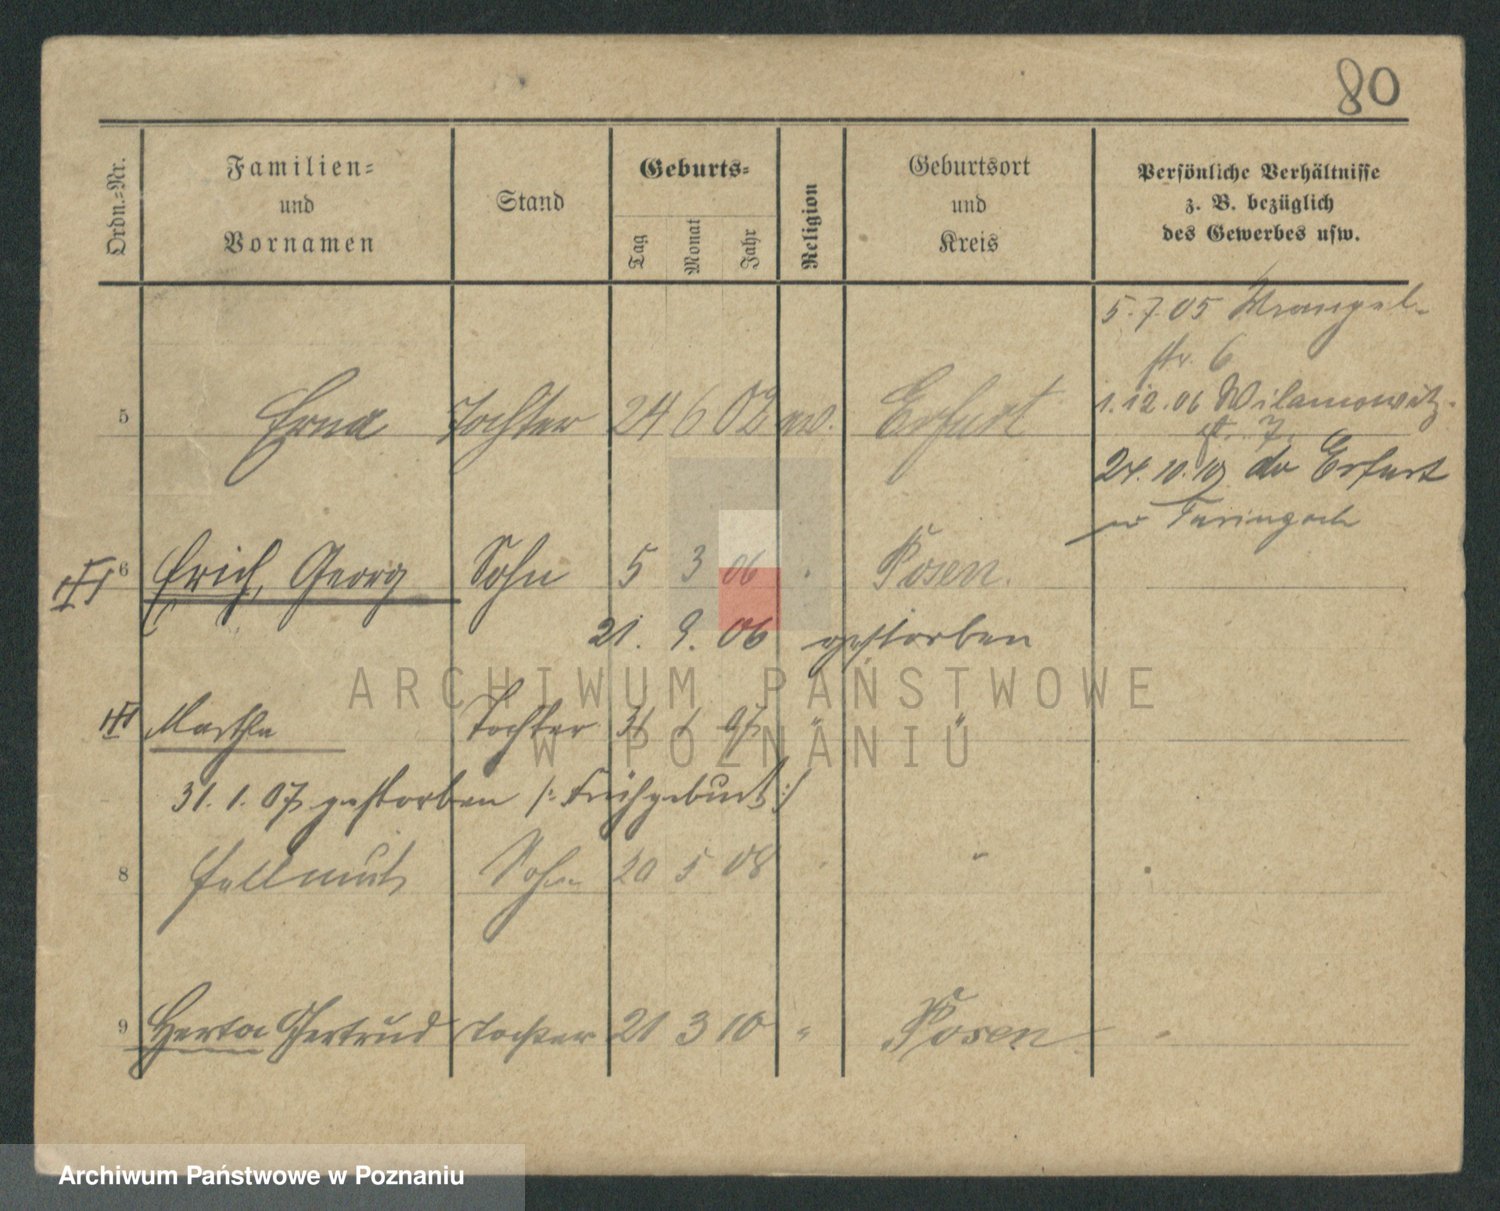 80
Ordn.-Nr.
Familien-
und
Vornamen
Stand
Geburts-
Tag
Monat
Jahr
Religion
Geburtsort
und
Kreis
Persönliche Verhältnisse
z. B. bezüglich
des Gewerbes usw.
5.7.05 Wrangel-
str. 6
5 Erna Tochter 24 6 02 ev. Erfurt
1.12.06 Wilamowitz-
str. 7.
24.10.10 Erfurt
6 Erich, Georg Sohn 5 3 06 Posen.
21. 9. 06 gestorben
Martha Tochter 31 1 07 " "
31. 1. 07 gestorben /: Frühgeburt :/
8 Hellmut Sohn 20 5 08 " "
9 Herta Gertrud Tochter 21 3 10 " Posen
ARCHIWUM PAŃSTWOWE
W POZNANIU
Archiwum Państwowe w Poznaniu